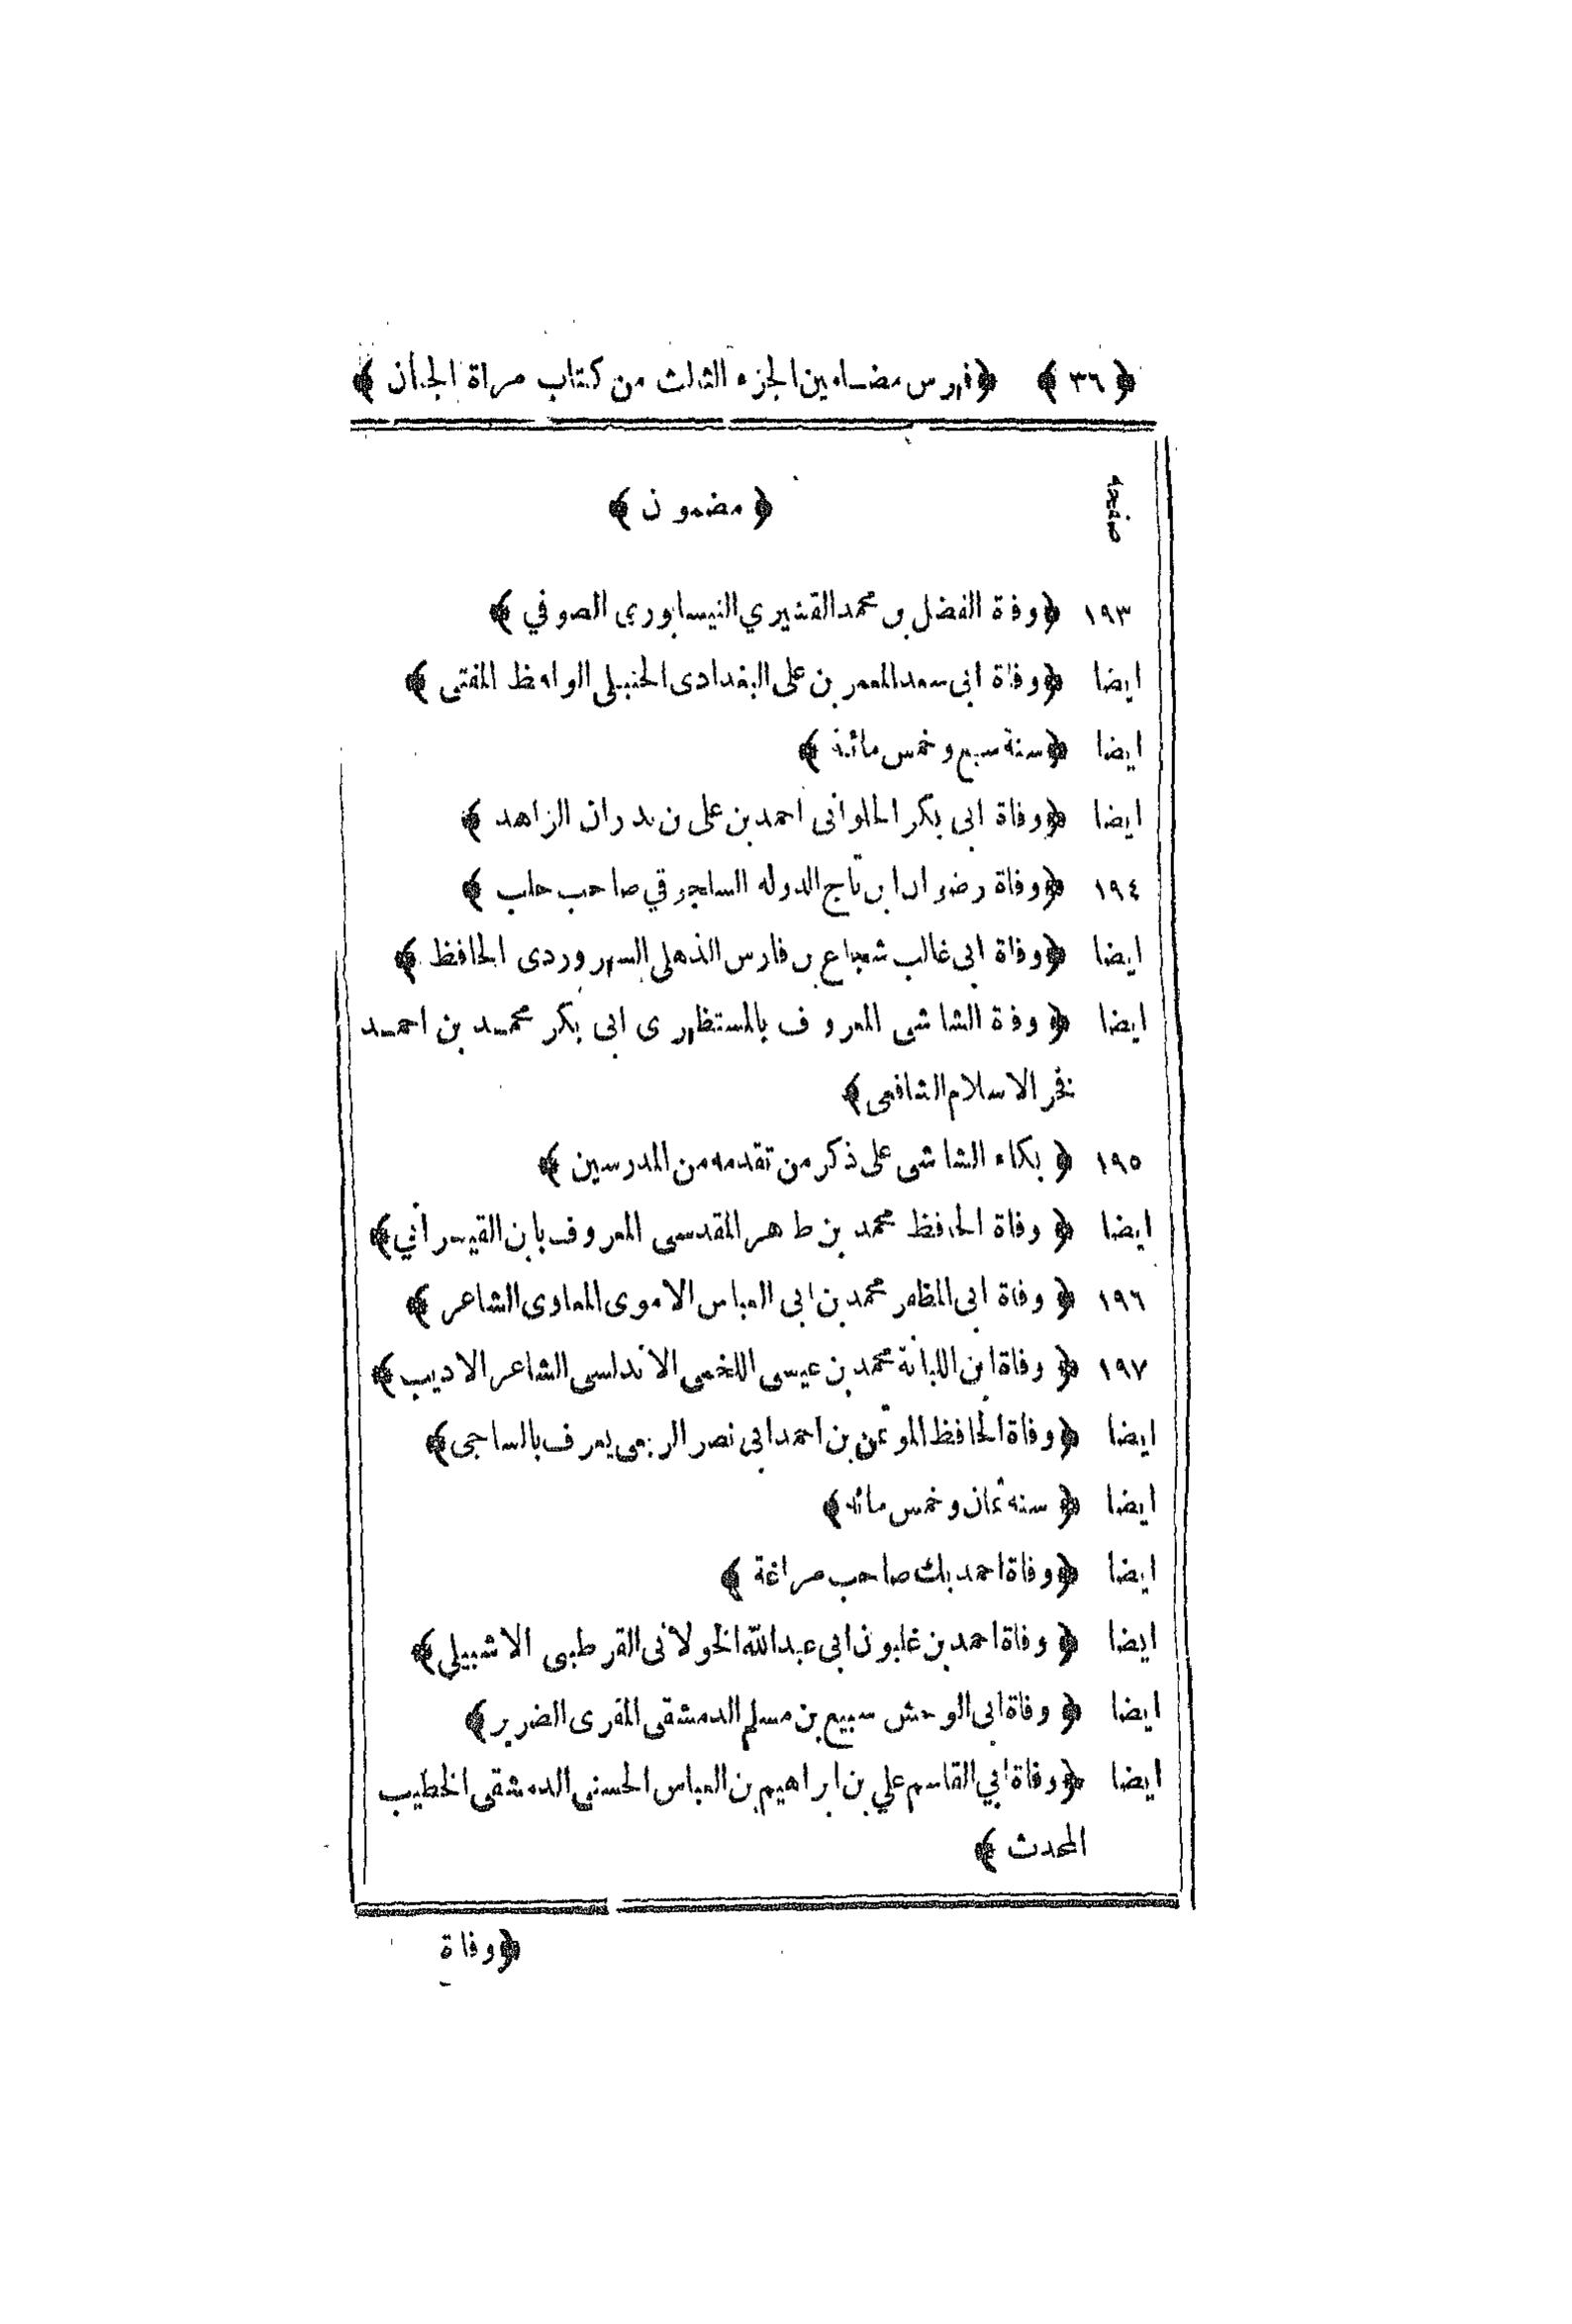 ﴿ ٣٦ ﴾ ﴿ فهرس مضامين الجزء الثالث من كتاب مرأة الجنان ﴾
صفحه ﴿ مضمون ﴾
١٩٣ ﴿ وفاة الفضل بن محمد القشيري النيسابورى الصوفي ﴾
ايضا ﴿ وفاة ابى سعد المعمر بن على البغدادى الحنبلى الواعظ المفتى ﴾
ايضا ﴿ سنة سبع وخمس مائة ﴾
ايضا ﴿ وفاة ابى بكر الحلوانى احمد بن على بن بدران الزاهد ﴾
١٩٤ ﴿ وفاة رضوان ابن تاج الدوله السلجوقي صاحب حلب ﴾
ايضا ﴿ وفاة ابى غالب شجاع بن فارس الذهلى السهروردى الحافظ ﴾
ايضا ﴿ وفاة الشاشى المعروف بالمستظهرى ابى بكر محمد بن احمد
فخر الاسلام الشافعى ﴾
١٩٥ ﴿ بكاء الشاشى على ذكر من تقدمه من المدرسين ﴾
ايضا ﴿ وفاة الحافظ محمد بن طاهر المقدسى المعروف بابن القيسراني ﴾
١٩٦ ﴿ وفاة ابى المظفر محمد بن ابى العباس الاموى المعاوى الشاعر ﴾
١٩٧ ﴿ وفاة ابن اللبانة محمد بن عيسى اللخمى الاندلسى الشاعر الاديب ﴾
ايضا ﴿ وفاة الحافظ الموتمن بن احمد ابى نصر الربعى يعرف بالساجى ﴾
ايضا ﴿ سنه ثمان وخمس مائه ﴾
ايضا ﴿ وفاة احمد بك صاحب مراغة ﴾
ايضا ﴿ وفاة احمد بن غلبون ابى عبدالله الخولانى القرطبى الاشبيلى ﴾
ايضا ﴿ وفاة ابى الوحش سبيع بن مسلم الدمشقى المقرى الضرير ﴾
ايضا ﴿ وفاة ابي القاسم علي بن ابراهيم بن العباس الحسنى الدمشقى الخطيب
المحدث ﴾
﴿ وفاة